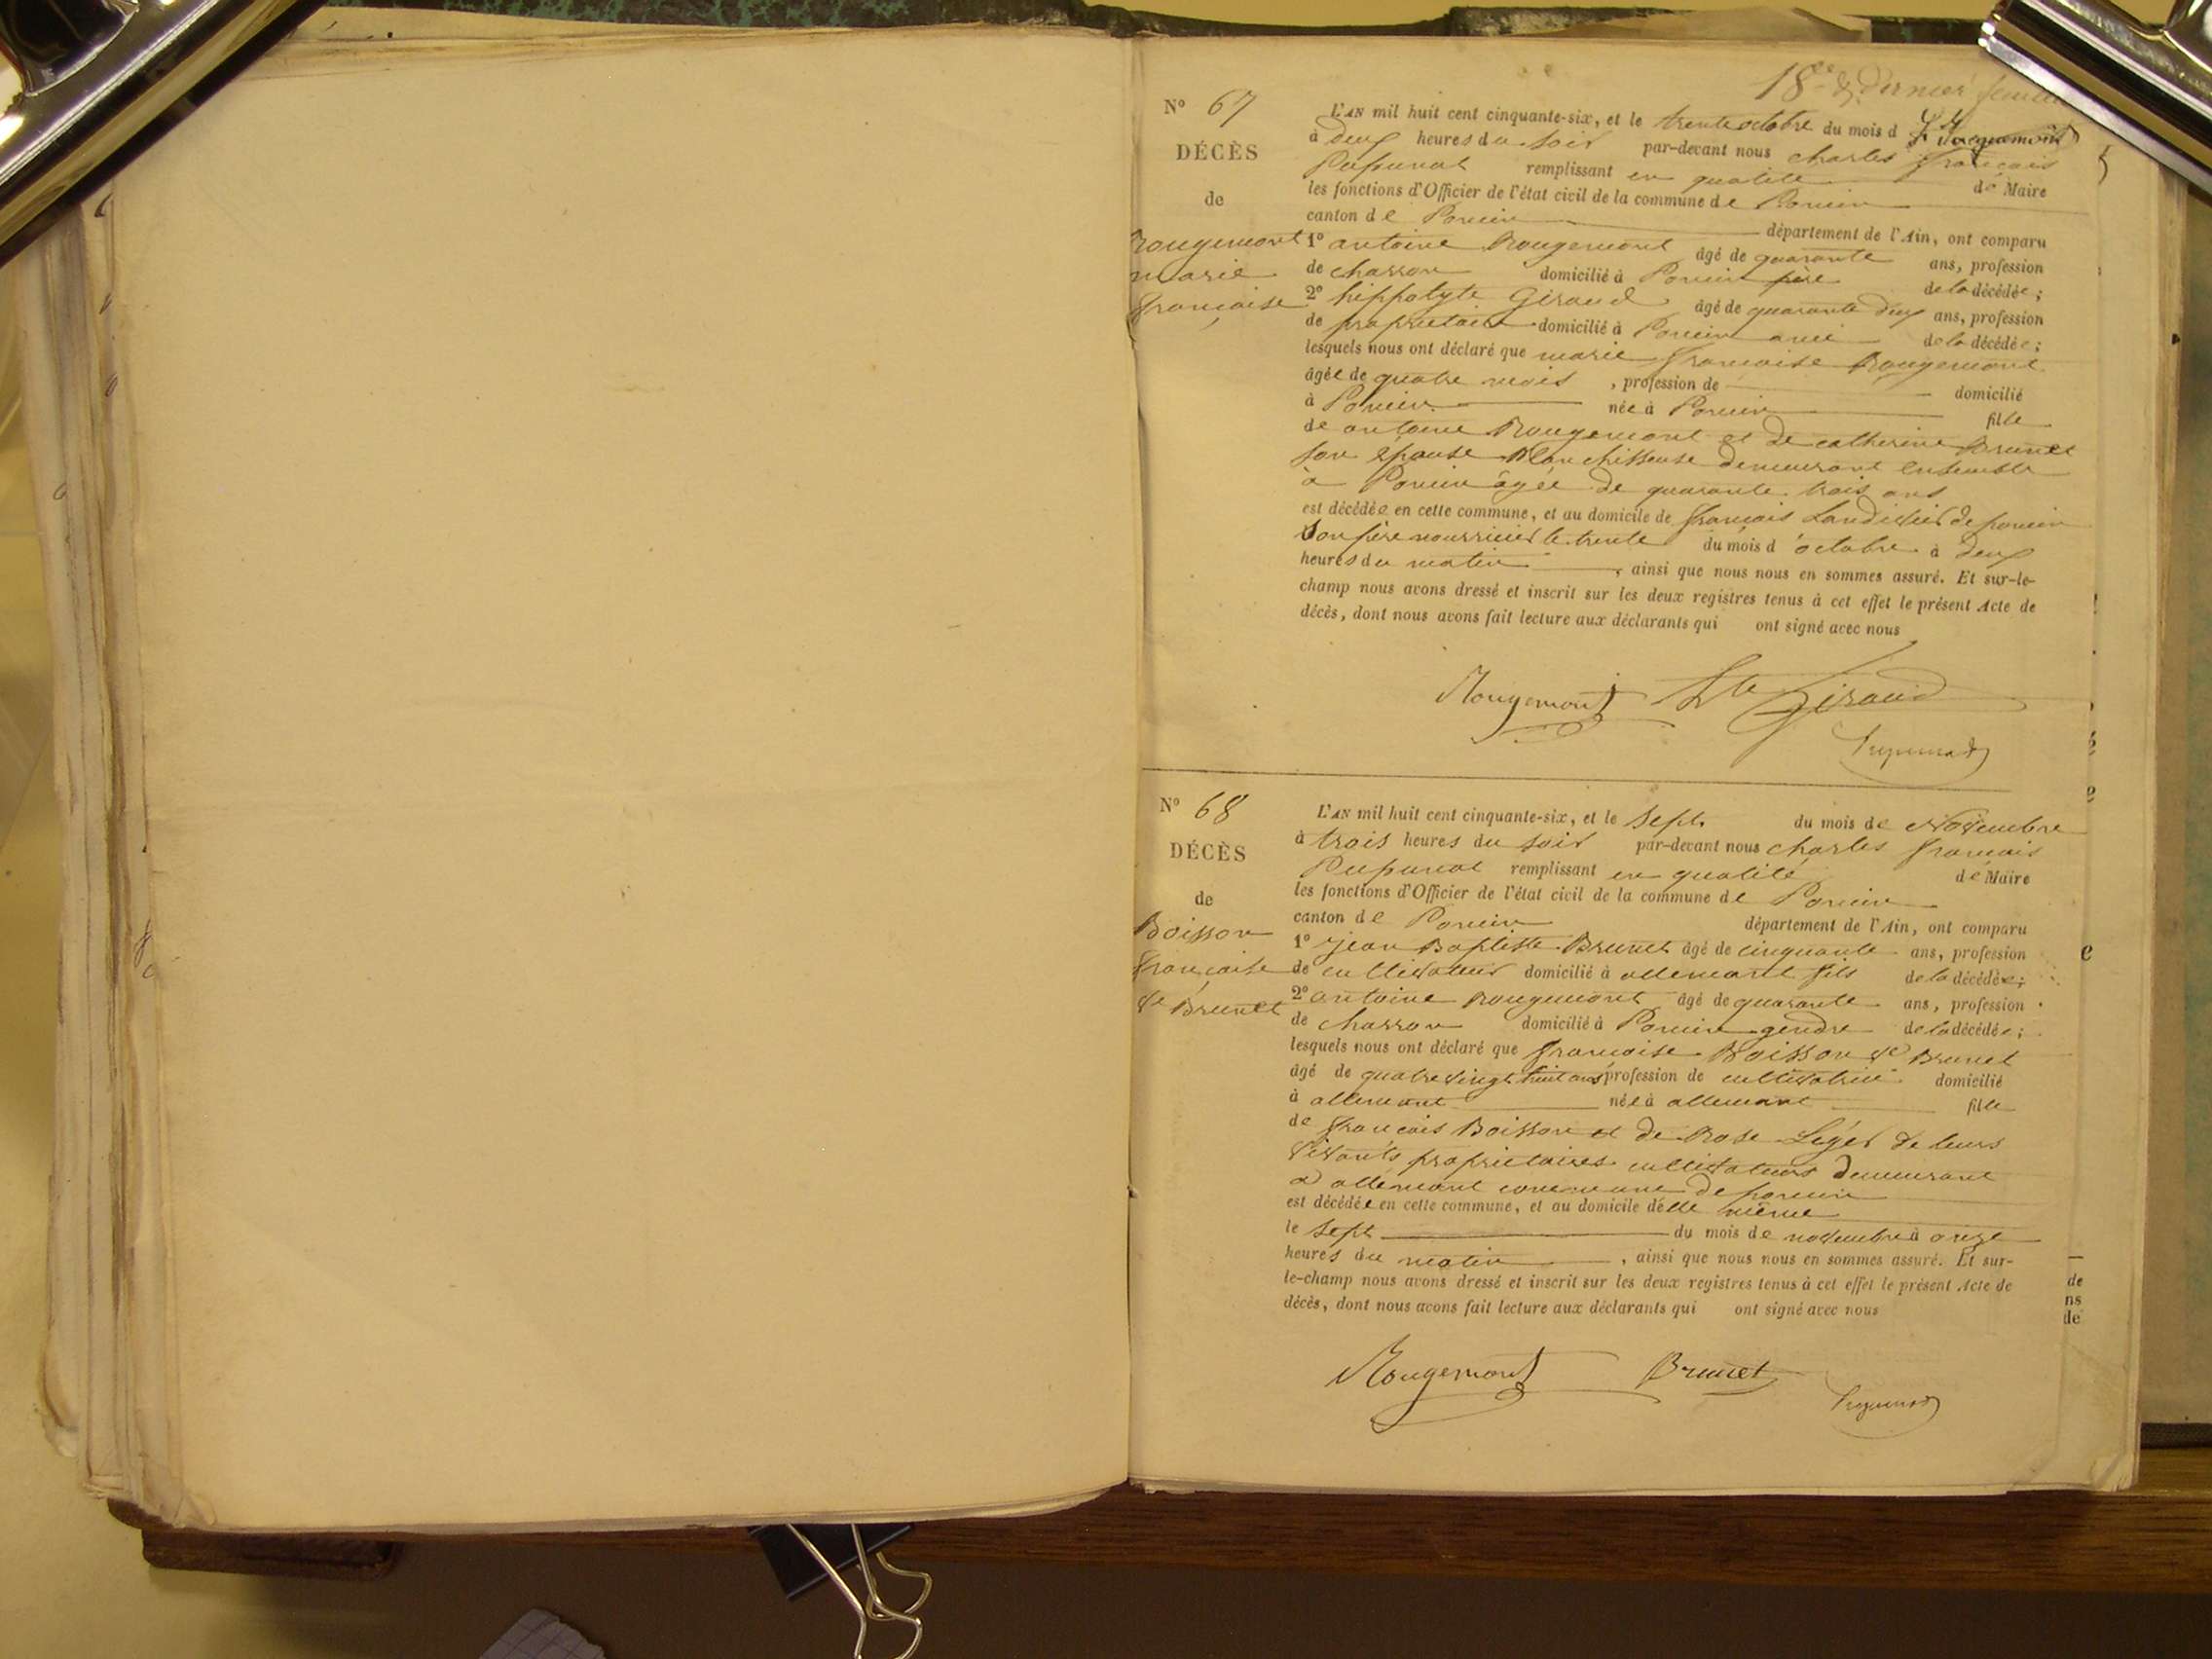 18e & dernier
N° 67
DÉCÈS
de
Rougemont
marie
françoise
L'AN mil huit cent cinquante-six, et le trente octobre du mois d
à deux heures du soir par-devant nous charles français
Pupunat remplissant en qualité de Maire
les fonctions d'Officier de l'état civil de la commune de Poncin
canton de Poncin département de l'Ain, ont comparu
1° antoine Rougemont âgé de quarante ans, profession
de charron domicilié à Poncin père de la décédée;
2° hippolyte Giraud âgé de quarante deux ans, profession
de propriétaire domicilié à Poncin ami de la décédée;
lesquels nous ont déclaré que marie françoise Rougemont
âgée de quatre mois , profession de domicilié
à Poncin née à Poncin fille
de antoine Rougemont et de catherine Brunet
son épouse Blanchisseuse demeurant ensemble
à Poncin âgée de quarante trois ans
est décédée en cette commune, et au domicile de françois de poncin
Son père nourricier le trente du mois d'octobre à deux
heures du matin , ainsi que nous nous en sommes assuré. Et sur-le-
champ nous avons dressé et inscrit sur les deux registres tenus à cet effet le présent Acte de
décès, dont nous avons fait lecture aux déclarants qui ont signé avec nous
Rougemont Hte Giraud
Pupunat
N° 68
DÉCÈS
de
Boisson
françoise
Ve Brunet
L'AN mil huit cent cinquante-six, et le Sept du mois de Novembre
à trois heures du soir par-devant nous charles français
Pupunat remplissant en qualité de Maire
les fonctions d'Officier de l'état civil de la commune de Poncin
canton de Poncin département de l'Ain, ont comparu
1° jean Baptiste Brunet âgé de cinquante ans, profession
de cultivateur domicilié à allemant fils de la décédée;
2° antoine Rougemont âgé de quarante ans, profession
de charron domicilié à Poncin gendre de la décédée;
lesquels nous ont déclaré que françoise Boisson Ve Brunet
âgé de quatre vingt huit ans profession de cultivatrice domicilié
à allemant née à allemant fille
de françois Boisson et de Rose Léger de leurs
vivants propriétaires cultivateurs demeurant
à allemant commune de poncin
est décédée en cette commune, et au domicile d'elle même
le Sept du mois de novembre à onze
heures du matin , ainsi que nous nous en sommes assuré. Et sur-
le-champ nous avons dressé et inscrit sur les deux registres tenus à cet effet le présent Acte de
décès, dont nous avons fait lecture aux déclarants qui ont signé avec nous
Rougemont Brunet
Pupunat
de
ns
de